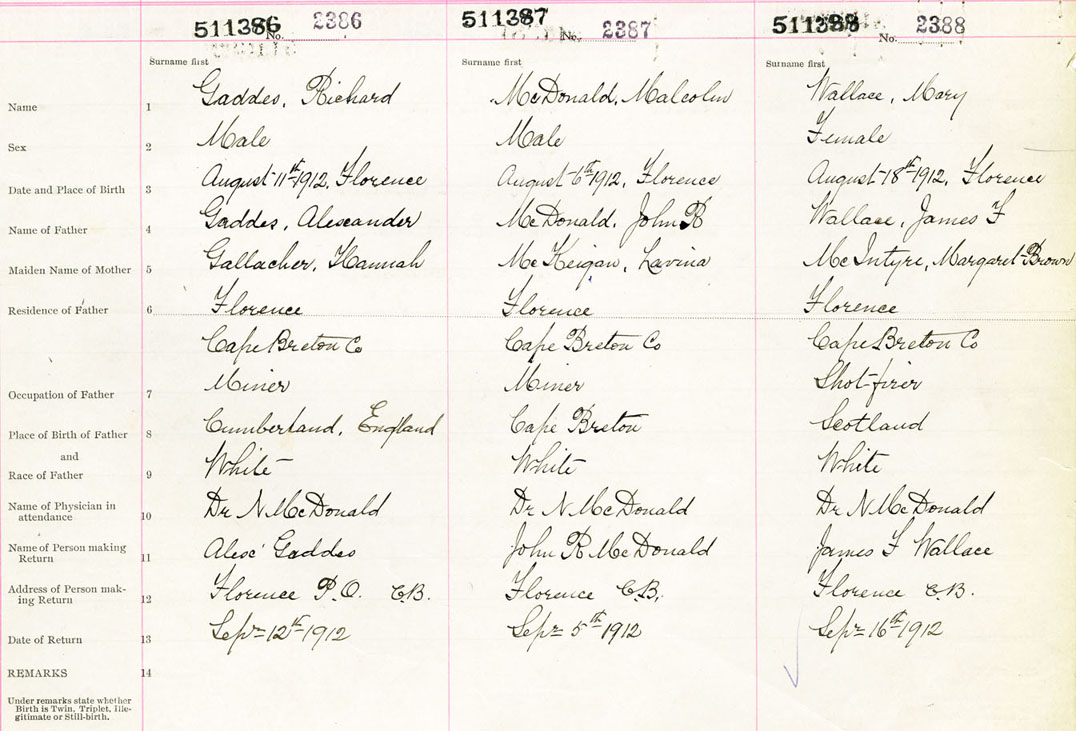 511386 No. 2386 511387 No. 2387 511388 No. 2388
Surname first Surname first Surname first
Name 1 Gaddes, Richard McDonald, Malcolm Wallace, Mary
Sex 2 Male Male Female
Date and Place of Birth 3 August 11th 1912, Florence August 6th 1912, Florence August 18th 1912, Florence
Name of Father 4 Gaddes, Alexander McDonald, John R Wallace, James F
Maiden Name of Mother 5 Gallacher, Hannah McKeigan, Lavina McIntyre, Margaret Brown
Residence of Father 6 Florence Florence Florence
Cape Breton Co Cape Breton Co Cape Breton Co
Occupation of Father 7 Miner Miner Shot-firer
Place of Birth of Father 8 Cumberland, England Cape Breton Scotland
and
Race of Father 9 White White White
Name of Physician in
attendance 10 Dr N McDonald Dr N McDonald Dr N McDonald
Name of Person making
Return 11 Alex' Gaddes John R McDonald James F Wallace
Address of Person mak-
ing Return 12 Florence P.O. C.B. Florence C.B. Florence C.B.
Date of Return 13 Sepr 12th 1912 Sepr 5th 1912 Sepr 16th 1912
REMARKS 14
Under remarks state whether
Birth is Twin, Triplet, Ille-
gitimate or Still-birth.